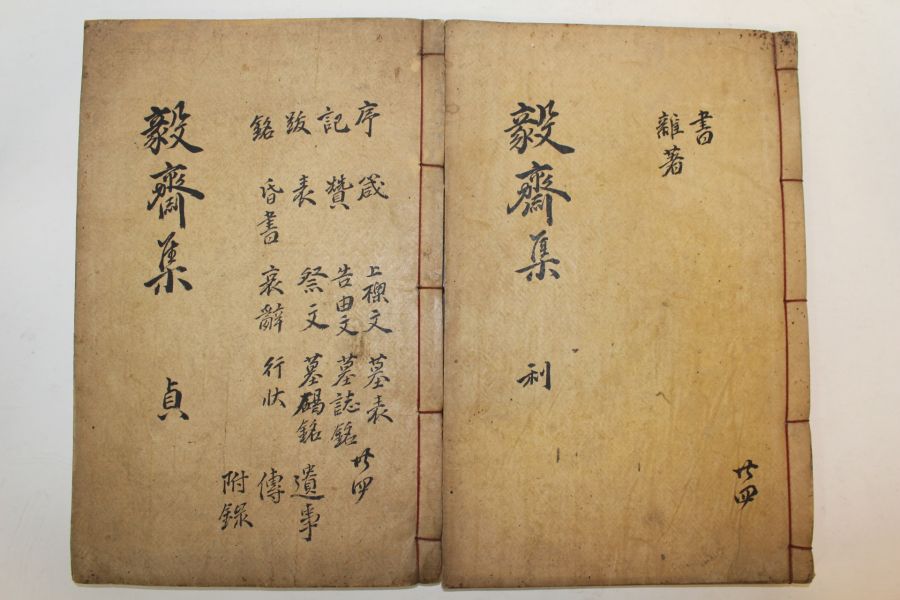 書
雜著
共四
毅齋集 利
序 箴 上樑文 墓表
記 贊 告由文 墓誌銘
共四
跋 表 祭文 墓碣銘 遺事
銘 昏書 哀辭 行狀 傳
附錄
毅齋集 貞